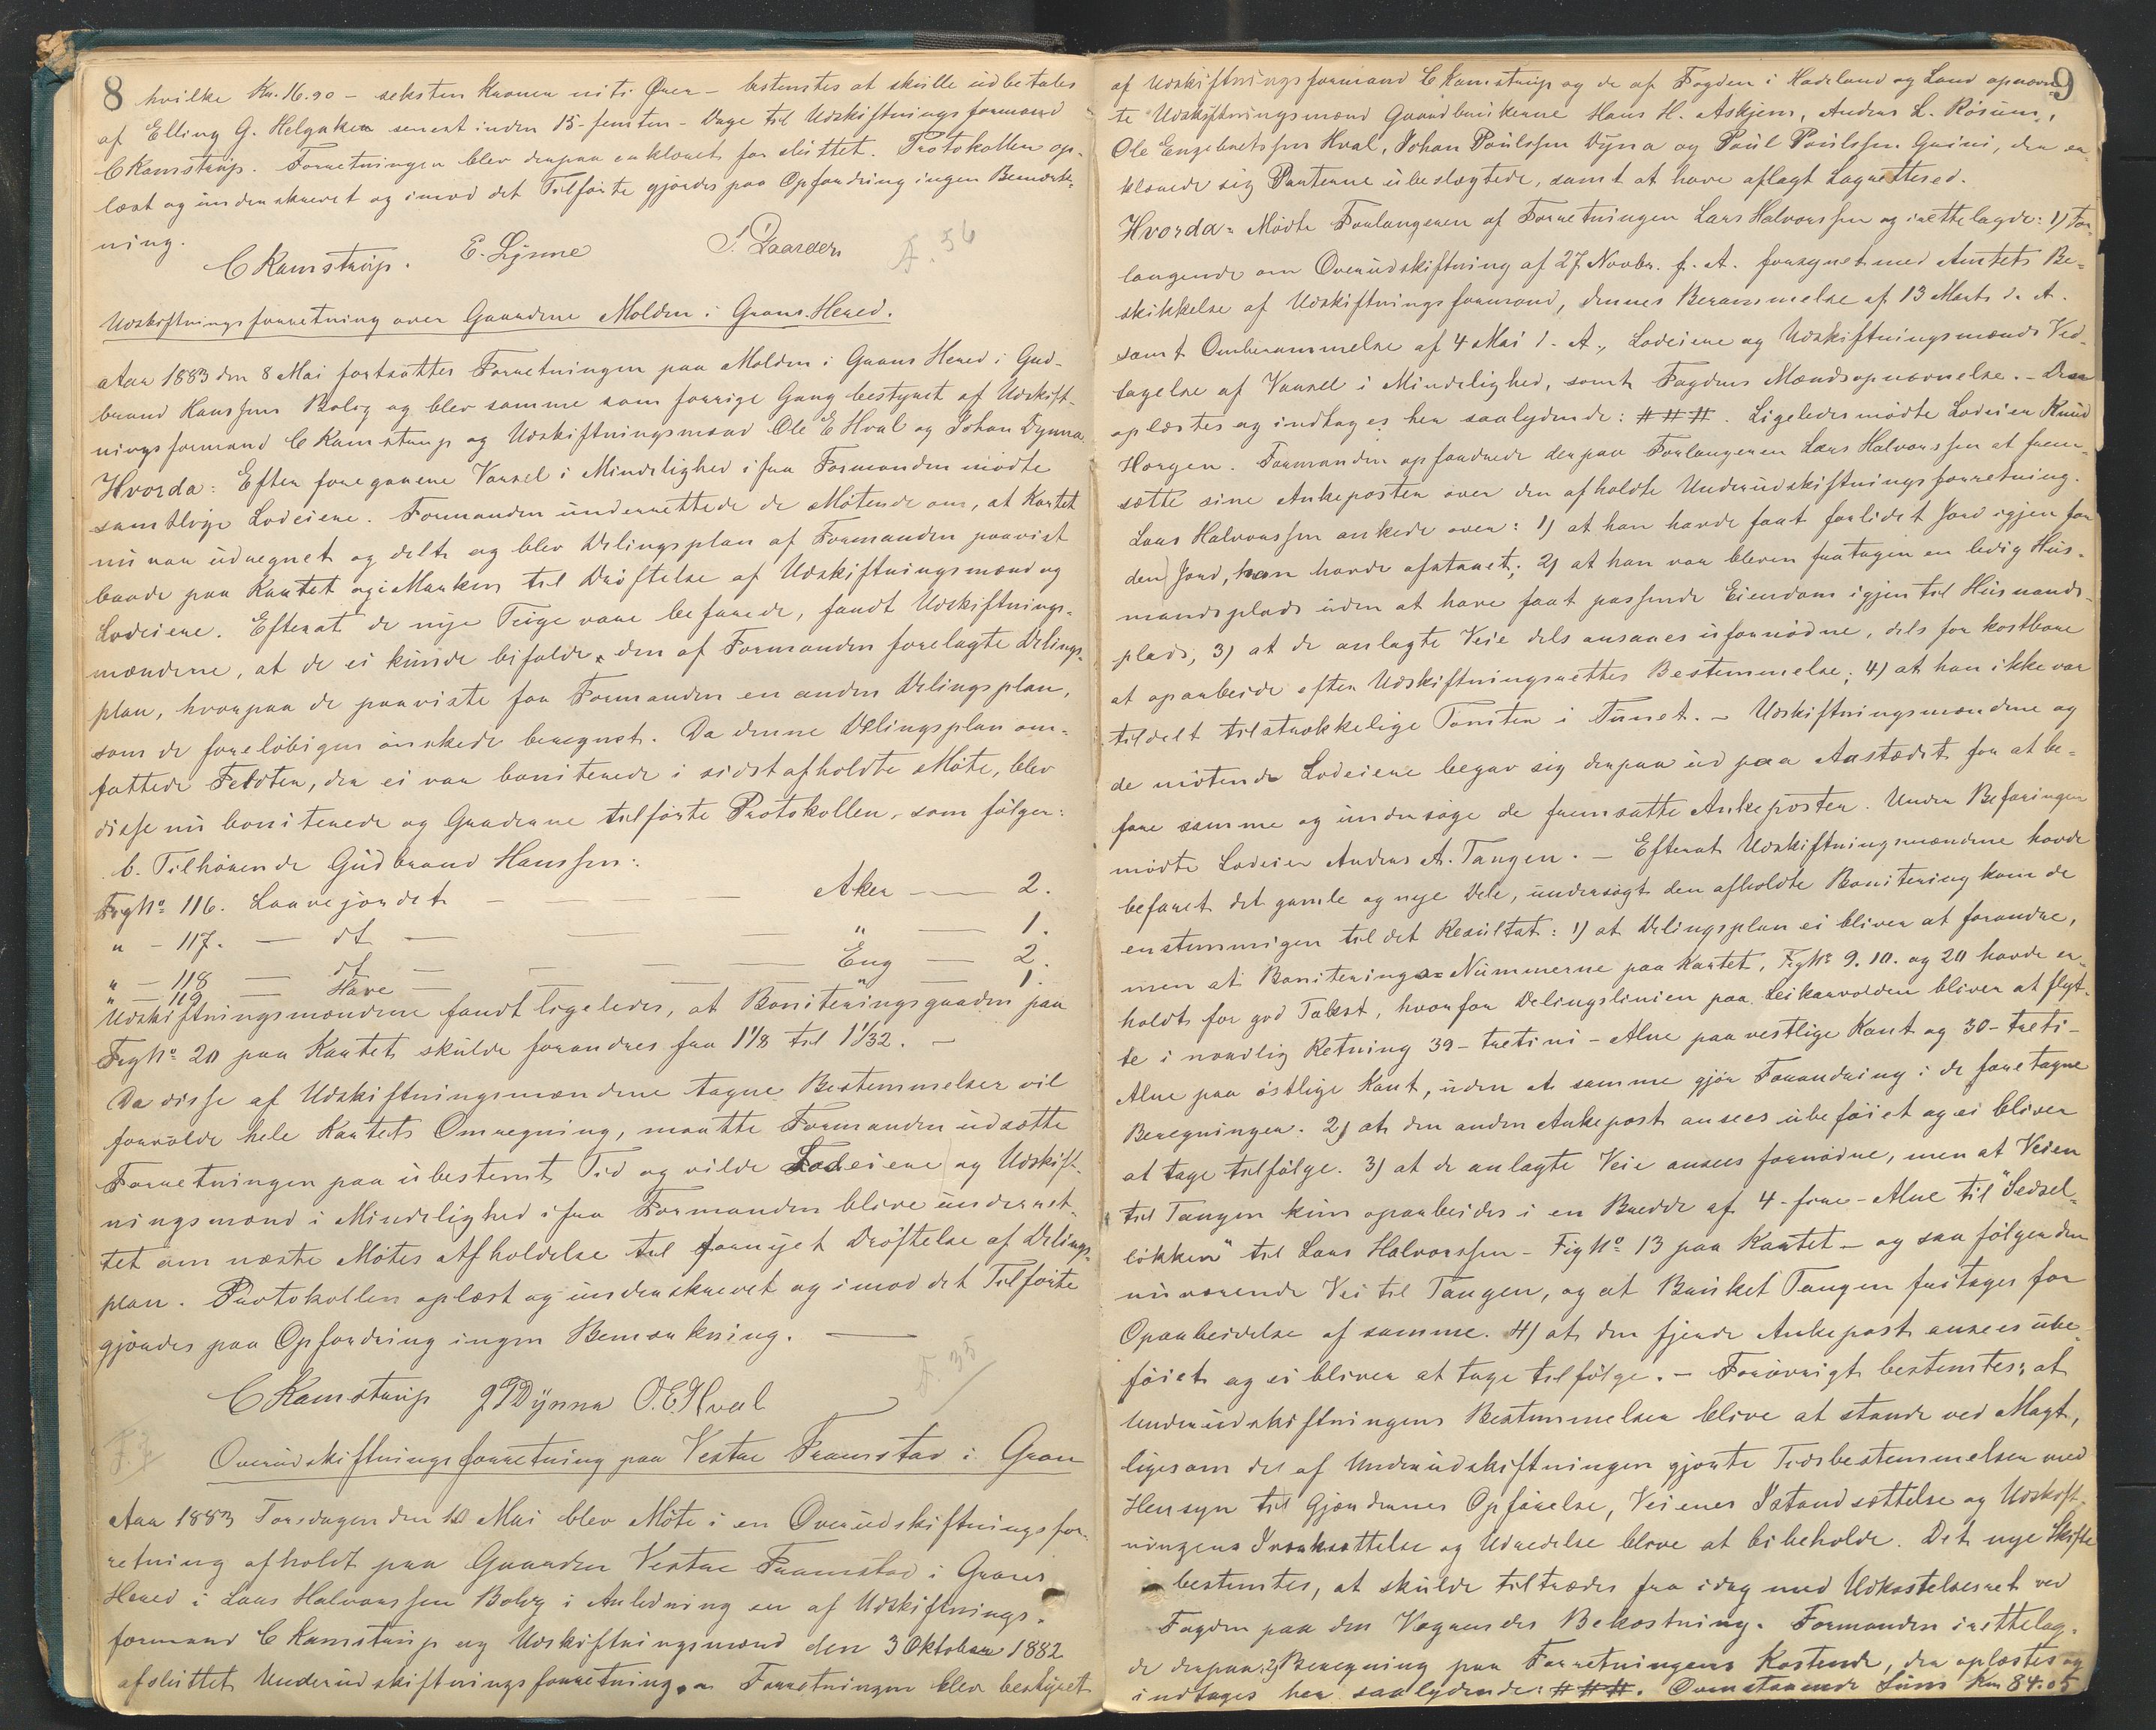 8
hvilke Kr. 16.90 – seksten Kroner niti Ører – bestemtes at skulle udbetales
af Elling G. Helgaker senest inden 15 – femten – Dage til Udskiftningsformand
C Kamstrup. Forretningen blev derpaa erklæret for sluttet. Protokollen op-
læst og underskrevet og imod det Tilførte gjordes paa Opfordring ingen Bemærk-
ning.
C Kamstrup. E. Lynne P. Gaarder
Udskiftningsforretning over Gaardene Molden i Grans Hered.
Aar 1883 den 8 Mai fortsattes Forretningen paa Molden i Grans Hered i Gud-
brand Hanssens Bolig og blev samme som forrige Gang bestyret af Udskift-
ningsformand C Kamstrup og Udskiftningsmænd Ole E Hval og Johan Dynna.
Hvorda: Efter foregaaende Varsel i Mindelighed ifra Formanden mødte
samtlige Lodeiere. Formanden underrettede de Møtende om, at Kartet
nu var udregnet og delt og blev Delingsplan af Formanden paavist
baade paa Kartet og i Marken til Drøftelse af Udskiftningsmænd og
Lodeiere. Efterat de nye Teige vare befarede, fandt Udskiftnings-
mændene, at de ei kunde bifalde den af Formanden forelagte Delings-
plan, hvorpaa de paaviste for Formanden en anden Delingsplan,
som de foreløbigen ønskede beregnet. Da denne Delingsplan om-
fattede Feldter, der ei var boniterede i sidst afholdte Møte, blev
disse nu boniterede og Graderne tilførte Protokollen, som følger:
b. Tilhørende Gudbrand Hanssen:
Fig No 116. Laavejordet — Aker — 2.
" – 117. — dt — " — 1.
" – 118 — dt — Eng — 2.
" – 119 — Have — " — 1.
Udskiftningsmændene fandt ligeledes, at Boniteringsgraden paa
Fig No 20 paa Kartet skulde forandres fra 1 1/8 til 1 1/32. –
Da disse af Udskiftningsmændene tagne Bestemmelser vil
forvolde hele Kartets Omregning, maatte Formanden udsætte
Forretningen paa ubestemt Tid og vilde Lodeiene og Udskift-
ningsmænd i Mindelighed ifra Formanden blive underret-
tet om næste Møtes Afholdelse til fornyet Drøftelse af Delings-
plan. Protokollen oplæst og underskrevet og imod det Tilførte
gjordes paa Opfordring ingen Bemærkning. —
C Kamstrup J P Dynna O. E. Hval
Overudskiftningsforretning paa Vestre Framstad i Gran
Aar 1883 Torsdagen den 10 Mai blev Møte i en Overudskiftningsfor-
retning afholdt paa Gaarden Vestre Framstad i Grans
Hered i Lars Halvorssens Bolig i Anledning en af Udskiftnings-
formand C Kamstrup og Udskiftningsmænd den 3 Oktober 1882
afsluttet Underudskiftningsforretning. – Forretningen blev bestyret
9
af Udskiftningsformand C Kamstrup og de af Fogden i Hadeland og Land opnævn-
te Udskiftningsmænd Gaardbrukerne Hans H. Askjem, Anders L. Røsum,
Ole Engebretssen Hval, Johan Poulssen Dyna og Poul Poulssen Grini, der er-
klærede sig Parterne ubeslægtede, samt at have aflagt Lagrettesed.
Hvorda: Mødte Forlangeren af Forretningen Lars Halvorssen og irettelagde: 1) For-
langende om Overudskiftning af 27 Novbr. f. A. forsynet med Amtets Be-
skikkelse af Udskiftningsformand, dennes Berammelse af 13 Marts d. A.
samt Omberammelse af 4 Mai d. A., Lodeiere og Udskiftningsmænds Ved-
tagelse af Varsel i Mindelighed, samt Fogdens Mændsopnævnelse. – Disse
oplæstes og indtages her saalydende: # # #. Ligeledes mødte Lodeier Knud
Horgen. Formanden opfordrede derpaa Forlangeren Lars Halvorssen at frem-
sætte sine Ankeposter over den afholdte Underudskiftningsforretning.
Lars Halvorssen ankede over: 1) at han havde faat forlidet Jord igjen for
den Jord, han havde afstaaet; 2) at han var bleven fratagen en ledig Hus-
mandsplads uden at have faat passende Eiendom igjen til Husmands-
plads, 3) at de anlagte Veie dels ansaaes ufornødne, dels for kostbare
at oparbeide efter Udskiftningsrettes Bestemmelse; 4) at han ikke var
tildelt tilstrækkelige Tomter i Tunet. – Udskiftningsmændene og
de møtende Lodeiere begav sig derpaa ud paa Aastædet for at be-
fare samme og undersøge de fremsatte Ankeposter. Under Befaringen
mødte Lodeier Anders A. Tangen. – Efterat Udskiftningsmændene havde
befaret det gamle og nye Dele, undersøgt den afholdte Bonitering kom de
enstemmigen til det Resultat: 1) at Delingsplan ei bliver at forandre,
men at Boniterings-Nummerne paa Kartet, Fig No 9. 10. og 20 havde er-
holdt for god Takst, hvorfor Delingslinien paa Leikarvolden bliver at flyt-
te i nordlig Retning 39 – tretini – Alne paa vestlige Kant og 30 – treti –
Alne paa østlige Kant, uden at samme gjør Forandring i de foretagne
Beregninger. 2) at den anden Ankepost ansees ubeføiet og ei bliver
at tage tilfølge. 3) at de anlagte Veie ansees fornødne, men at Veien
til Tangen kun oparbeides i en Bredde af 4 – fire – Alne til "Sedsel-
løkken" til Lars Halvorssen – Fig No 13 paa Kartet – og saa følger den
nuværende Vei til Tangen, og at Bruket Tangen fritages for
Oparbeidelse af samme. 4) at den fjerde Ankepost ansees ube-
føiet og ei bliver at tage tilfølge. – Forøvrigt bestemtes: at
Underudskiftningens Bestemmelser blive at stande ved Magt,
ligesom de af Underudskiftningen gjorte Tidsbestemmelser med
Hensyn til Gjærdenes Opførelse, Veienes Istandsættelse og Udskift-
ningens Iverksættelse og Udredelse blive at bibeholde. Det nye Skifte
bestemtes, at skulde tiltrædes fra idag med Udkastelsesret ved
Fogden paa den Vægrendes Bekostning. Formanden irettelag-
de derpaa: 2) Beregning paa Forretningens Kostende, der oplæstes og
indtages her saalydende: # # #. Ovenstaaende Sum Kr 84.05